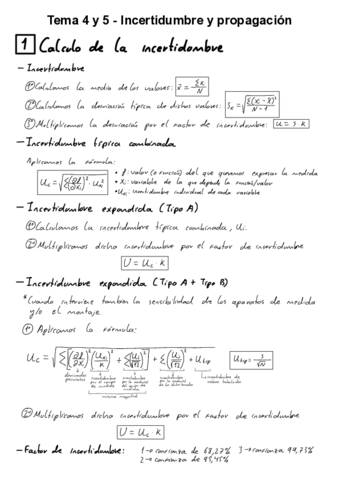 Tema 4 y 5 - Incertidumbre y propagación
1 Calculo de la incertidumbre
- Incertidumbre
① Calculamos la media de los valores: x̄ = Σxi / N
② Calculamos la desviación típica de dichos valores: Sx = √(Σ(xi - x̄)² / N-1)
③ Multiplicamos la desviación por el factor de incertidumbre: U = s·k
- Incertidumbre típica combinada
Aplicamos la fórmula:
Uc = √(Σ(∂f/∂xi)² · Uxi²)
• f: valor (o función) del que queremos expresar la medida
• Xi: variable de la que depende la función/valor
• Uxi: incertidumbre individual de cada variable
- Incertidumbre expandida (Tipo A)
① Calculamos la incertidumbre típica combinada, Ui.
② Multiplicamos dicha incertidumbre por el factor de incertidumbre
U = Uc · k
- Incertidumbre expandida (Tipo A + Tipo B)
* Cuando interviene tambien la sensibilidad de los aparatos de medida
y/o el montaje.
① Aplicamos la fórmula:
② Multiplicamos dicha incertidumbre por el factor de incertidumbre
U = Uc · k
- Factor de incertidumbre: 1 → confianza de 68,27% 3 → confianza 99,73%
2 → confianza de 95,45%